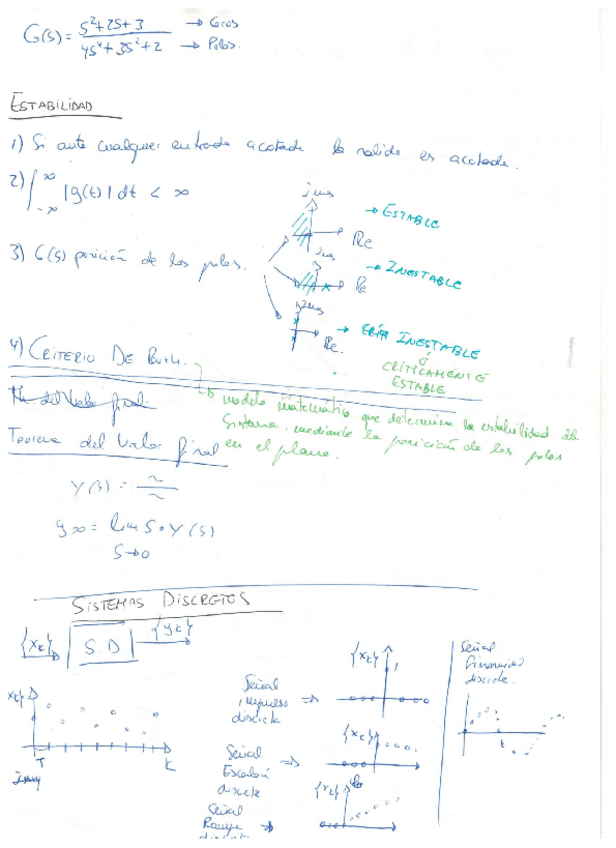 G(s) = (s²+2s+3)/(4s⁴+3s²+2) → Ceros → Polos.
ESTABILIDAD
1) Si ante cualquier entrada acotada la salida es acotada.
2) ∫_{-∞}^{∞} |g(t)| dt < ∞
jω
Re → ESTABLE
3) G(s) posición de los polos.
jω
Re → INESTABLE
jω
Re. → INESTABLE
ó
CRÍTICAMENTE
ESTABLE
4) CRITERIO DE Routh.
Th. del Valor final
modelo matemático que determina la estabilidad del
sistema mediante la posición de los polos
en el plano.
Teorema del Valor final
Y(s) =
y∞ = lim s·Y(s)
s→0
SISTEMAS DISCRETOS
{xk} S.D {yk}
xk
T
k
Señal impulso discreta ⇒ {xk} 1
Señal Escalón discreta ⇒ {xk}
Señal Rampa → {xk}
Señal
Sinusoidal
discreta.
k